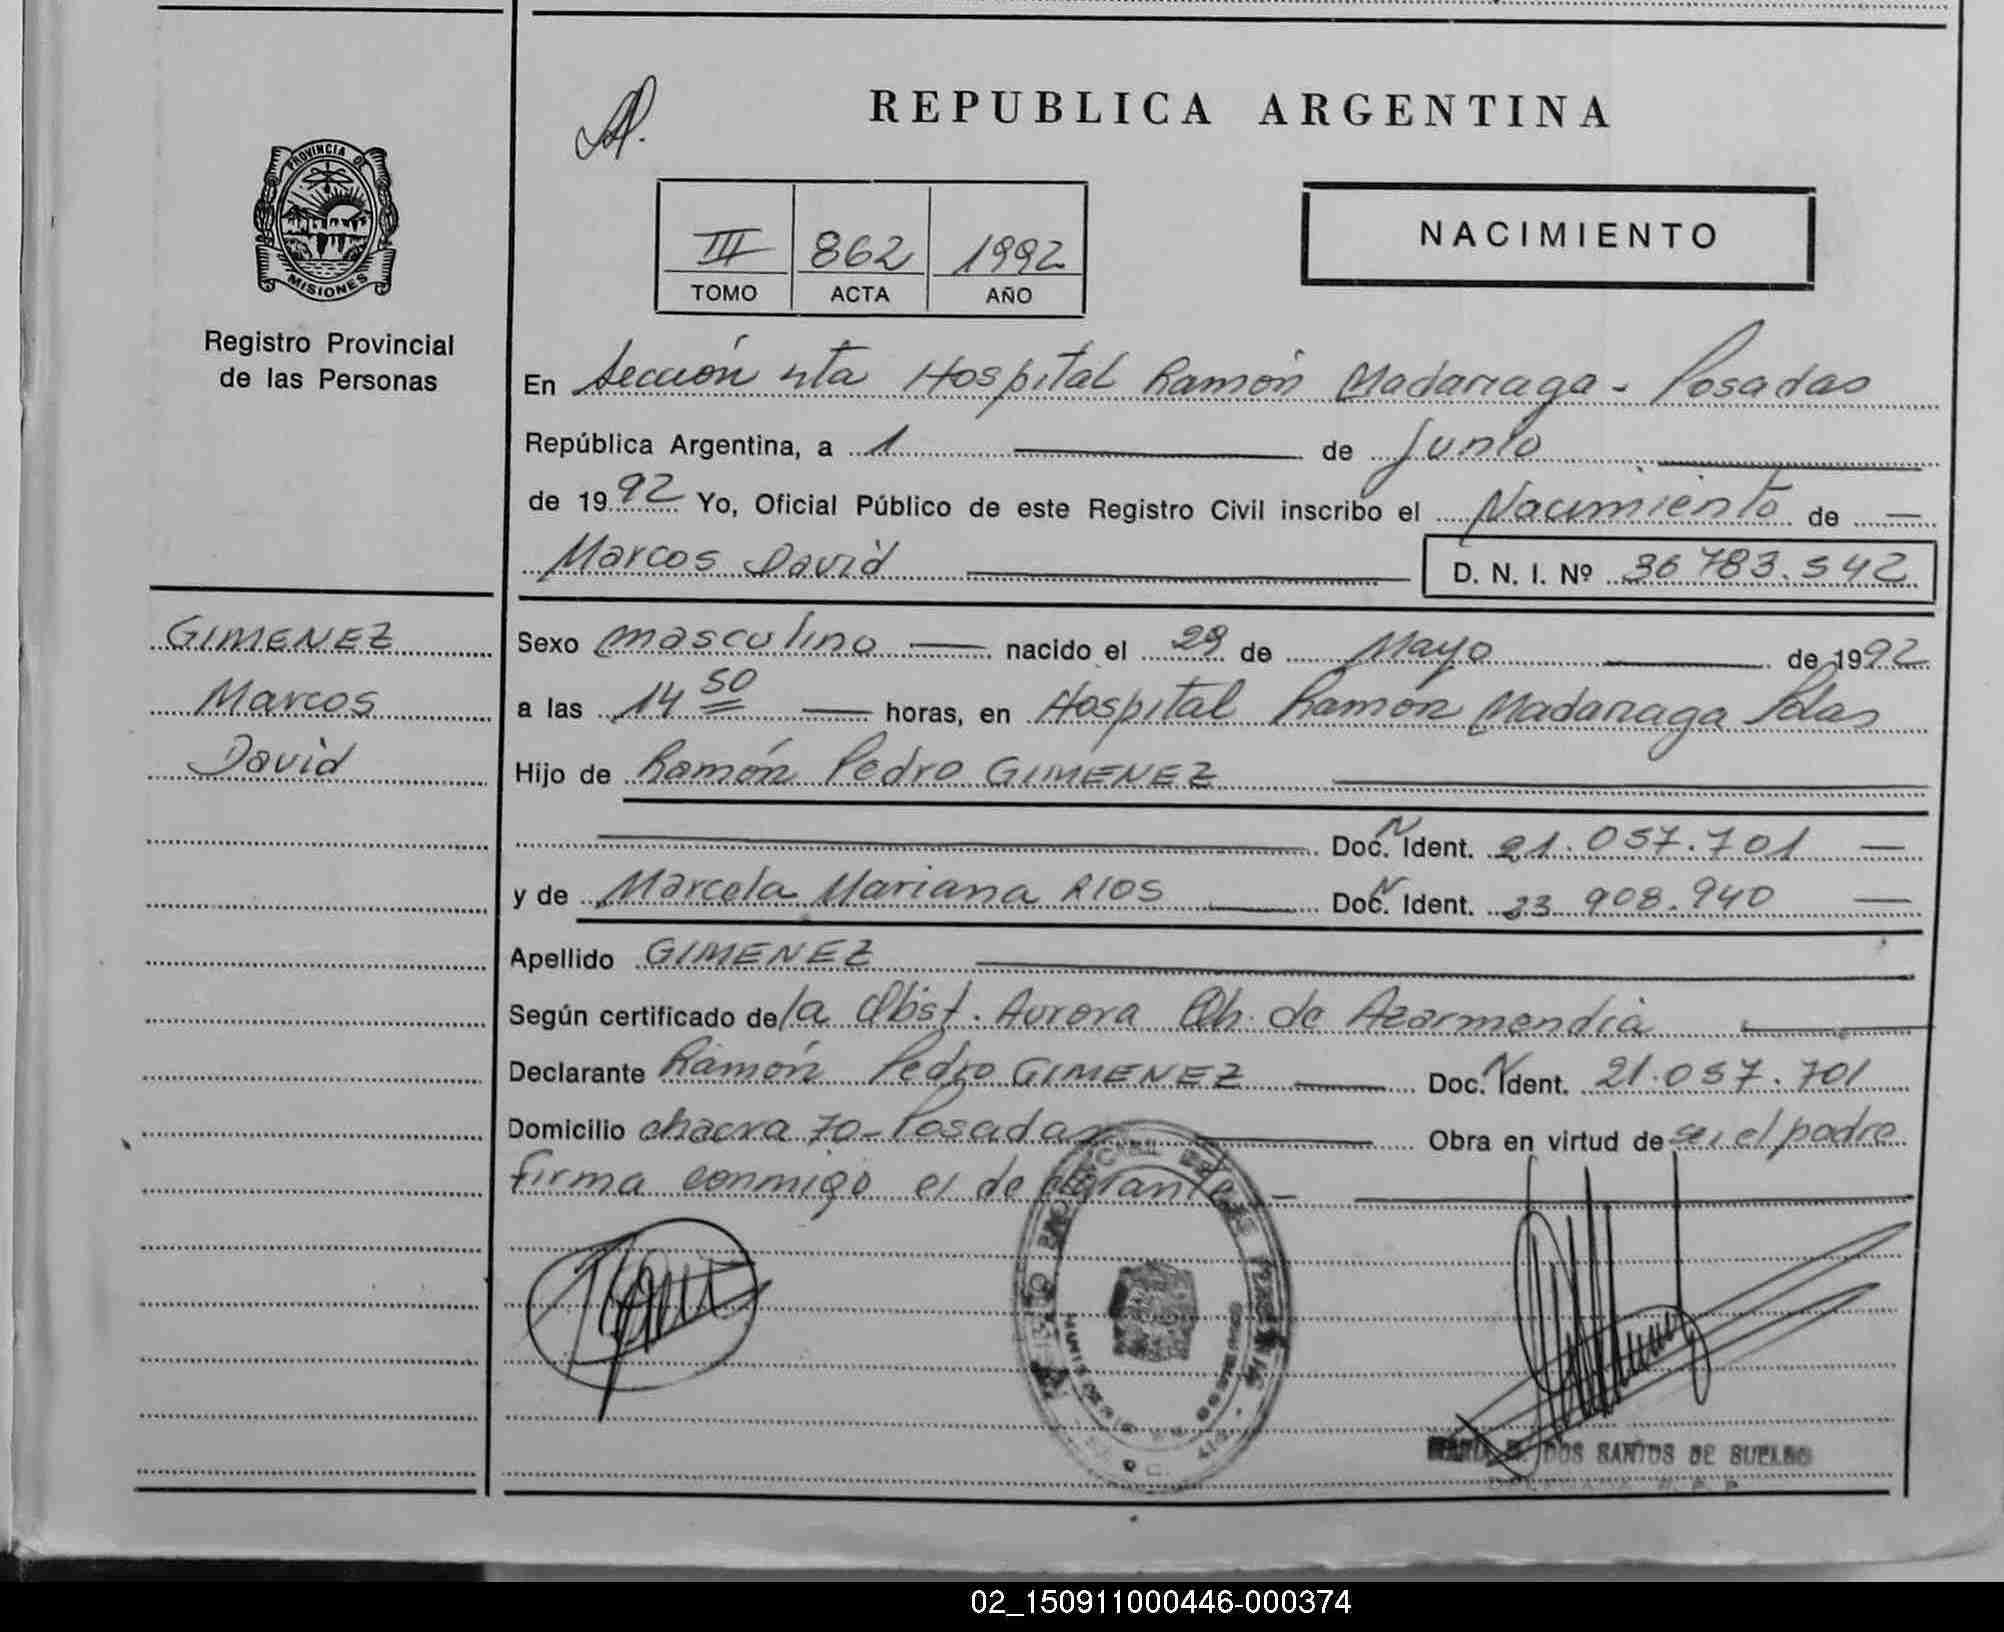 REPUBLICA ARGENTINA
PROVINCIA DE
MISIONES
Registro Provincial
de las Personas
III 862 1992
TOMO ACTA AÑO
NACIMIENTO
En Sección 4ta Hospital Ramón Madariaga - Posadas
República Argentina, a 1 de Junio
de 1992 Yo, Oficial Público de este Registro Civil inscribo el Nacimiento de
Marcos David D. N. I. Nº 36783.542
GIMENEZ
Marcos
David
Sexo masculino nacido el 29 de Mayo de 1992
a las 14 50 horas, en Hospital Ramón Madariaga Pdas
Hijo de Ramón Pedro GIMENEZ
Doc. N Ident. 21.057.701
y de Marcela Mariana RIOS Doc. N Ident. 23 908.940
Apellido GIMENEZ
Según certificado de la Obst. Aurora de Azarmendia
Declarante Ramón Pedro GIMENEZ Doc. N Ident. 21.057.701
Domicilio chacra 70 - Posadas Obra en virtud de ser el padre
firma conmigo el declarante
DOS SANTOS DE
02_150911000446-000374